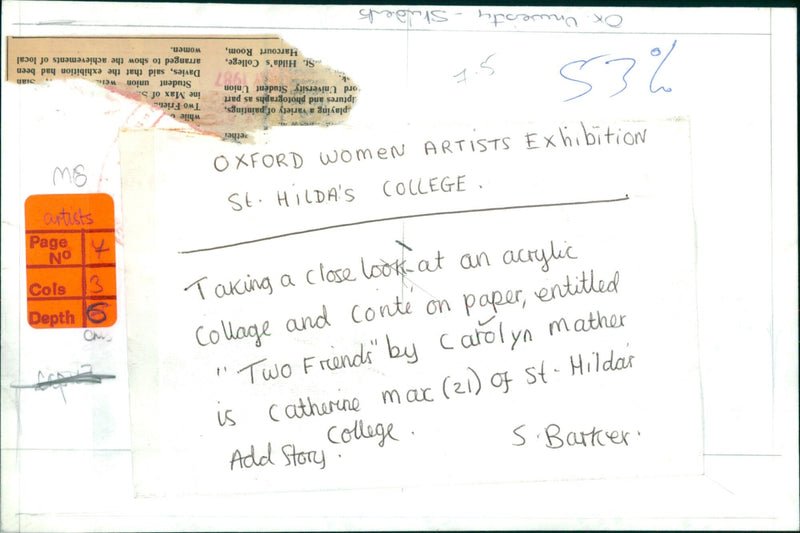 Ox. University - Students
53%
7.5
women.
arranged to show the achievements of local
Davies, said that the exhibition had been
Student union
ine Max of S
Two Frien
while
Harcourt Room,
St. Hilda's College,
ord University Student Union
ptures and photographs as part
playing a variety of paintings,
1987
M8
artists
Page No 4
Cols 3
Depth 6
Cms
OXFORD WOMEN ARTISTS Exhibition
St. HILDA'S COLLEGE.
Taking a close look at an acrylic
collage and conté on paper, entitled
"Two Friends" by Carolyn Mather
is Catherine Max (21) of St. Hilda's
College.
Add Story.
S. Barker.